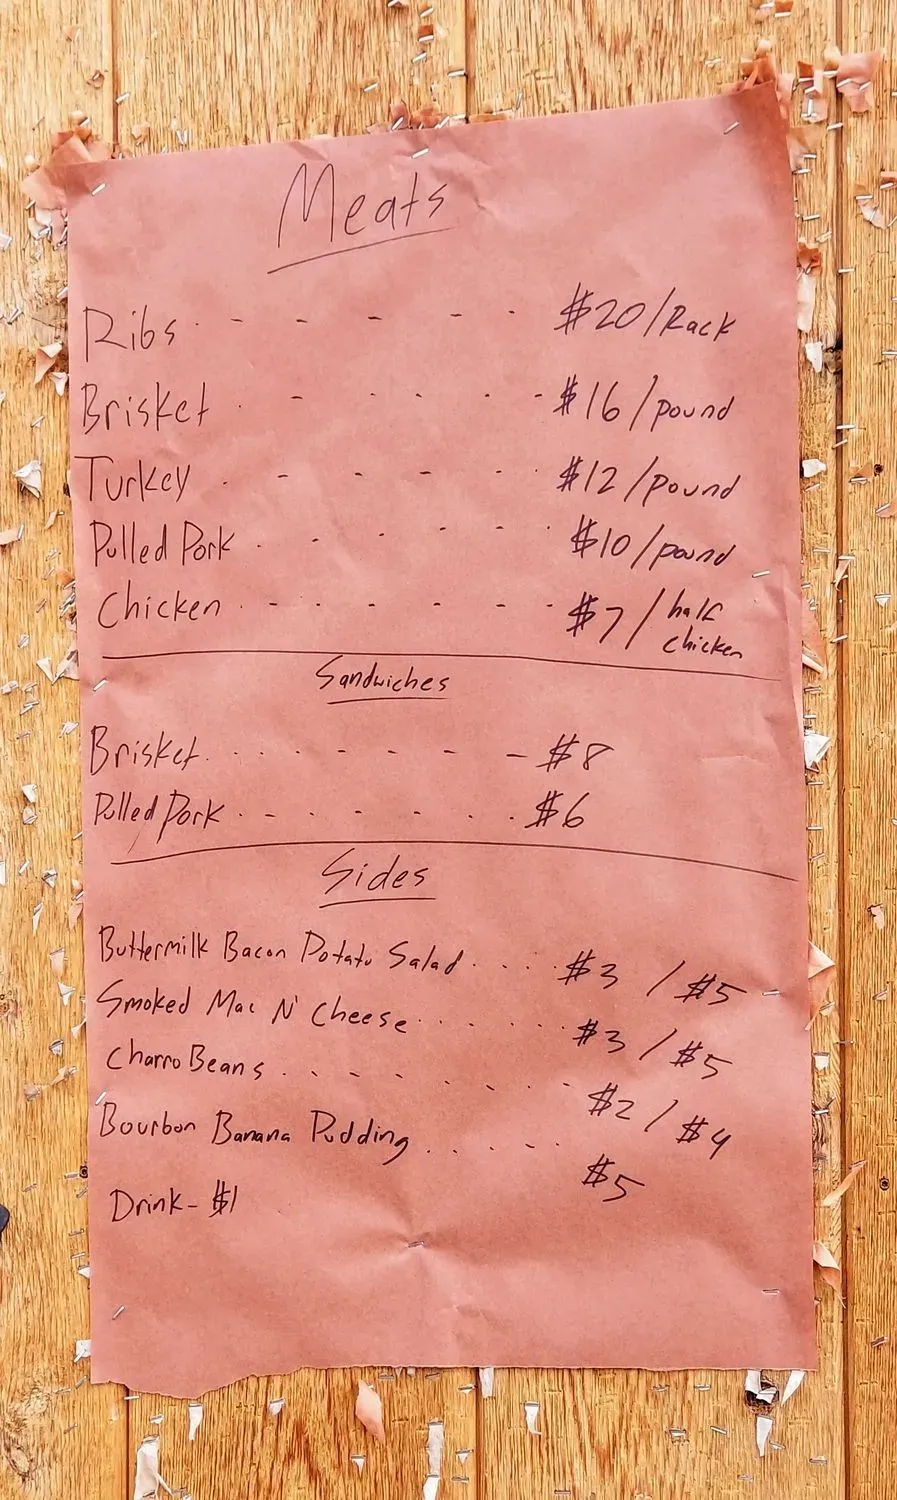 Meats
Ribs . - - - - . $20/Rack
Brisket . - . . . - $16/pound
Turkey . - - - - . $12/pound
Pulled Pork . . - - - . $10/pound
Chicken - . - - - - $7/half chicken
Sandwiches
Brisket . . . - - - - - $8
Pulled Pork . - - . - . . $6
Sides
Buttermilk Bacon Potato Salad . . . . $3 / $5
Smoked Mac N' Cheese . . . . . . . $3 / $5
Charro Beans . . . . . . . . $2 / $4
Bourbon Banana Pudding . . . . . $5
Drink - $1